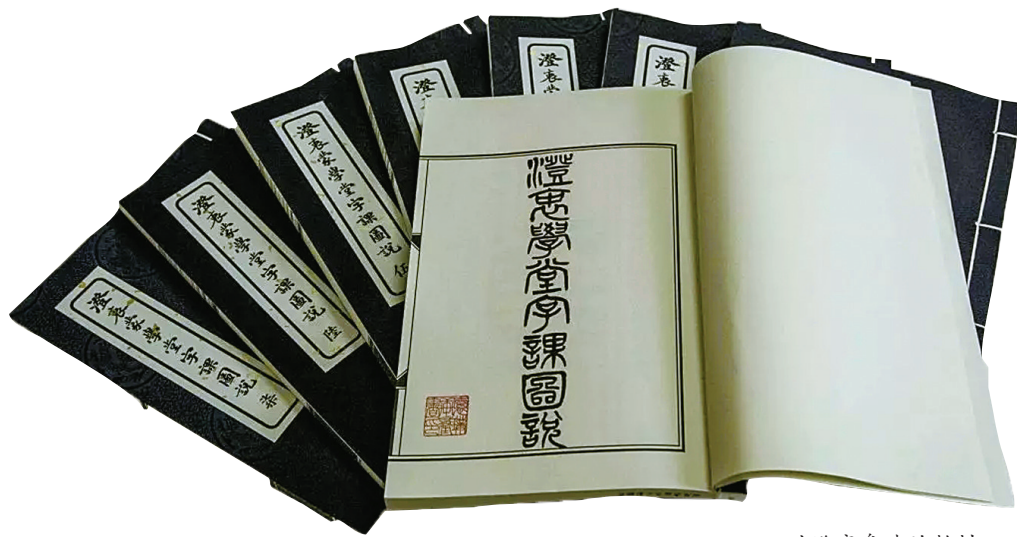 澄衷蒙學堂字課圖說 柒
澄衷蒙學堂字課圖說 陸
澄衷蒙學堂字課圖說 伍
澄衷
澄衷蒙
澄衷
澄衷學堂字課圖說